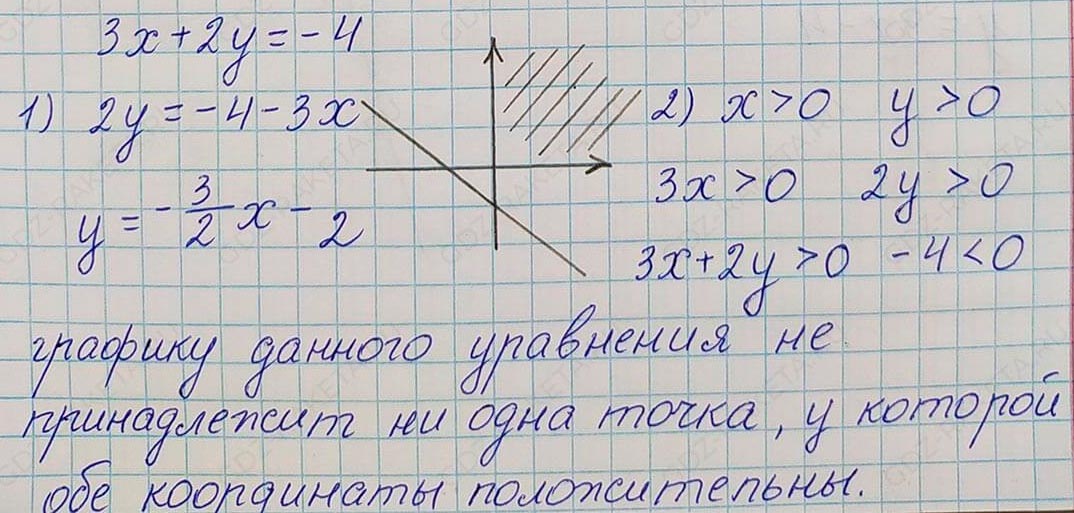 3x+2y=-4
1) 2y=-4-3x
y=-3/2x-2
2) x>0 y>0
3x>0 2y>0
3x+2y>0 -4<0
графику данного уравнения не
принадлежит ни одна точка, у которой
обе координаты положительны.